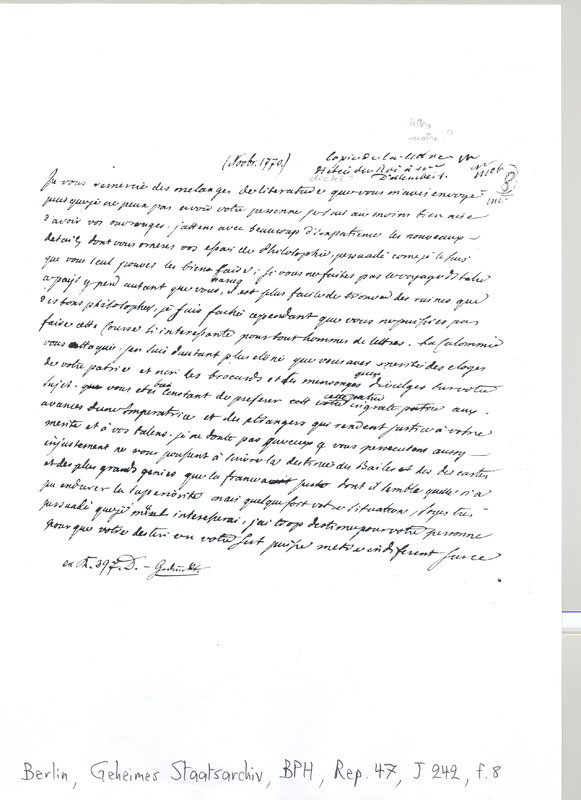 lettre
notre ?
(Novbr. 1770.) Copie de la lettre
dictée du Roi à
Dalembert.
dictée ?
Je vous remercie des melanges de literature que vous m'avés envoyé
puisque je ne peux pas avoir votre personne je suis au moins bien aise
d'avoir vos ouvrages. j'attens avec beaucoup d'impatience les nouveaux
details dont vous ornerés vos essais de Philosophie, persuadé comme je le suis
que vous seul pouvés les bien faire; si vous ne faites pas le voyage d'Italie
ce pays y perd autant que vous, il est plus facile de trouver des ruines que
des bons philosophes, je suis faché cependant que vous ne puissiés pas
faire cette Course si interessante pour tout hommes de lettres. La Calomnie
vous attaque, j'en suis d'autant plus etoné que vous aves merité des eloges
de votre patrie et non les brocards et des mensonges divulges sur votre
sujet. que vous etes bon Constant de preferer cette ingrate patrie aux
avances d'une Imperatrice et des etrangers qui rendent justice à vôtre
merite et à vos talens. je ne doute pas que ceux q vous persecutent aussy
injustement ne vous poussent à suivre la destinée des Bailes et des des cartes
et des plus grands genies que la france ait porté dont il semble quelle n'a
pu endurer la superiorité mais quelque soit votre situation, soyés très
persuadé que je m'y interesserai, j'ai trop d'estime pour votre personne
pour que votre destin ou votre sort puisse m'etre indiferent sur ce
Berlin, Geheimes Staatsarchiv, BPH, Rep. 47, J 242, f. 8